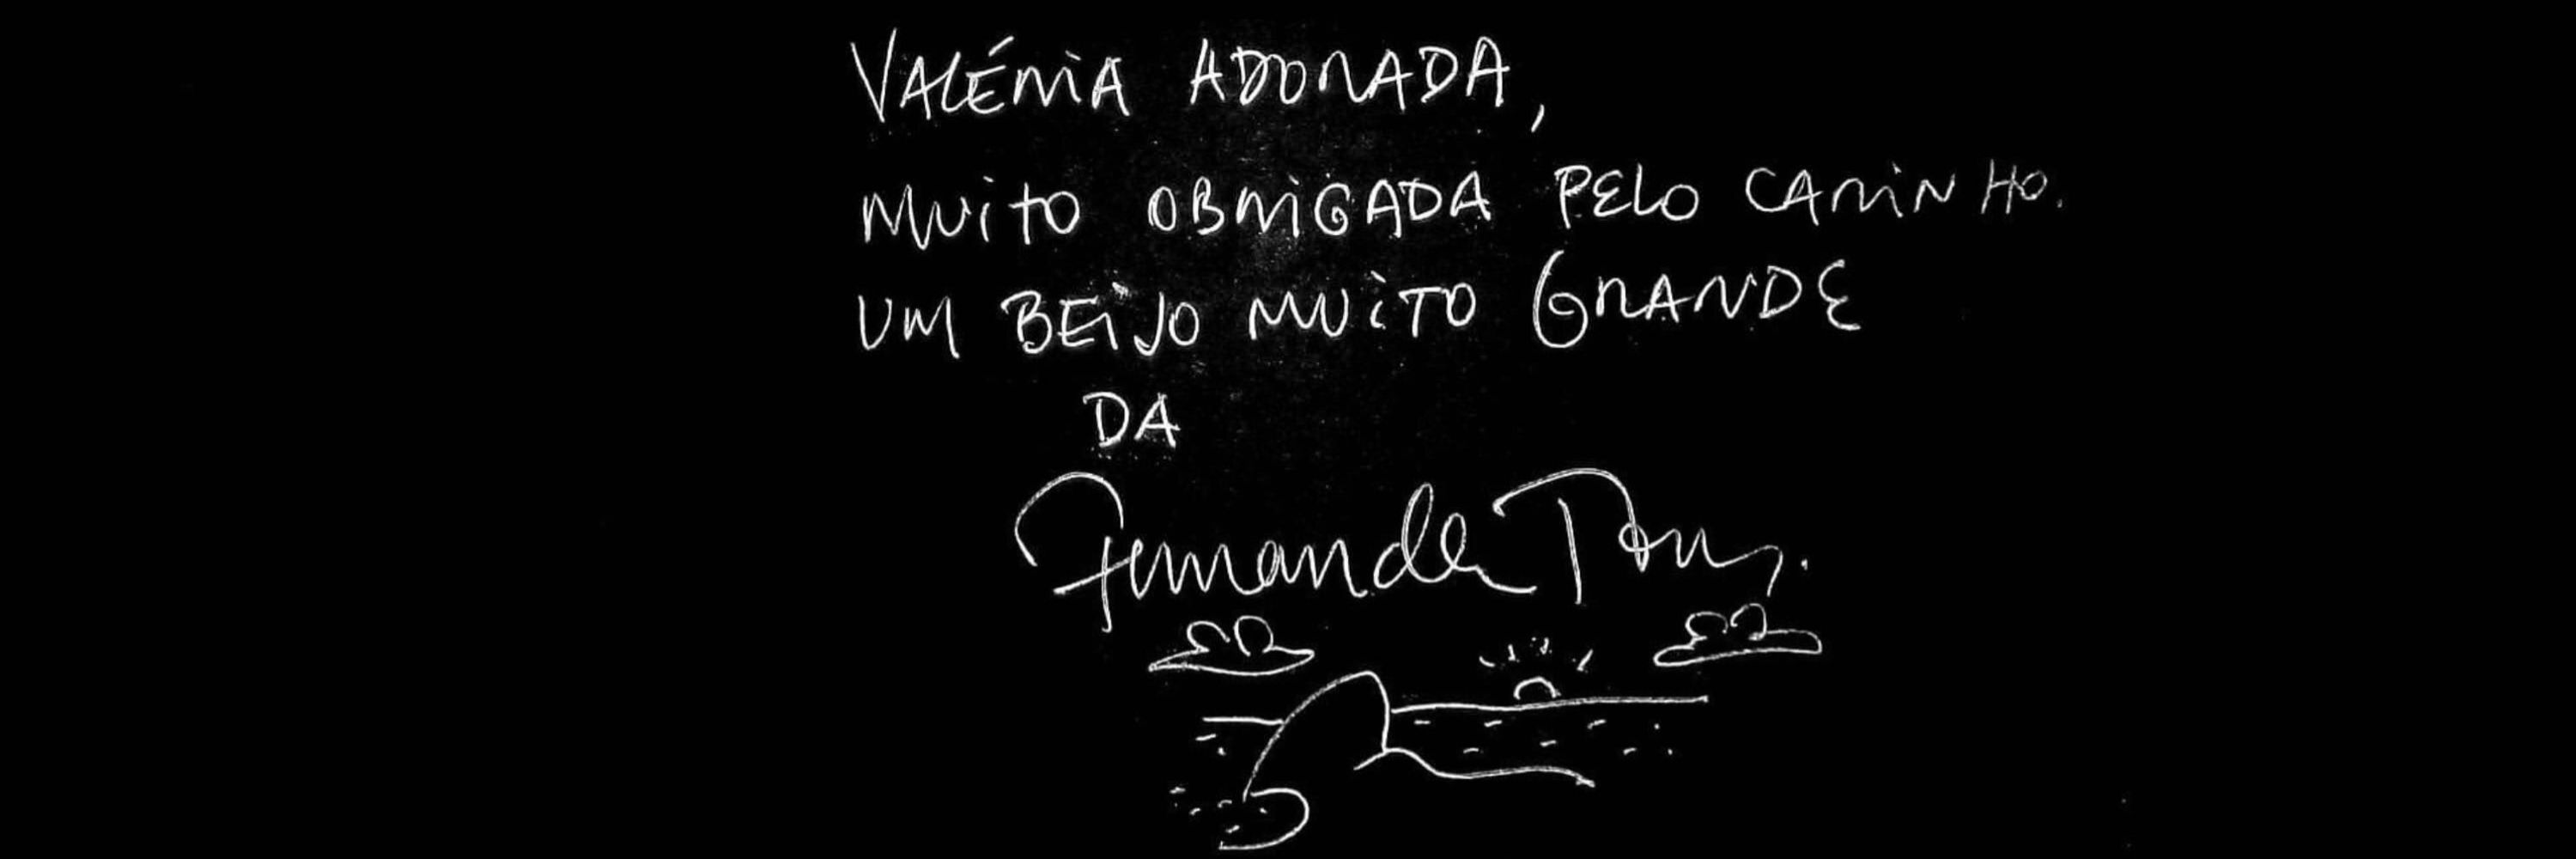 VALÉRIA ADORADA,
MUITO OBRIGADA PELO CARINHO.
UM BEIJO MUITO GRANDE
DA
Fernanda Torres.